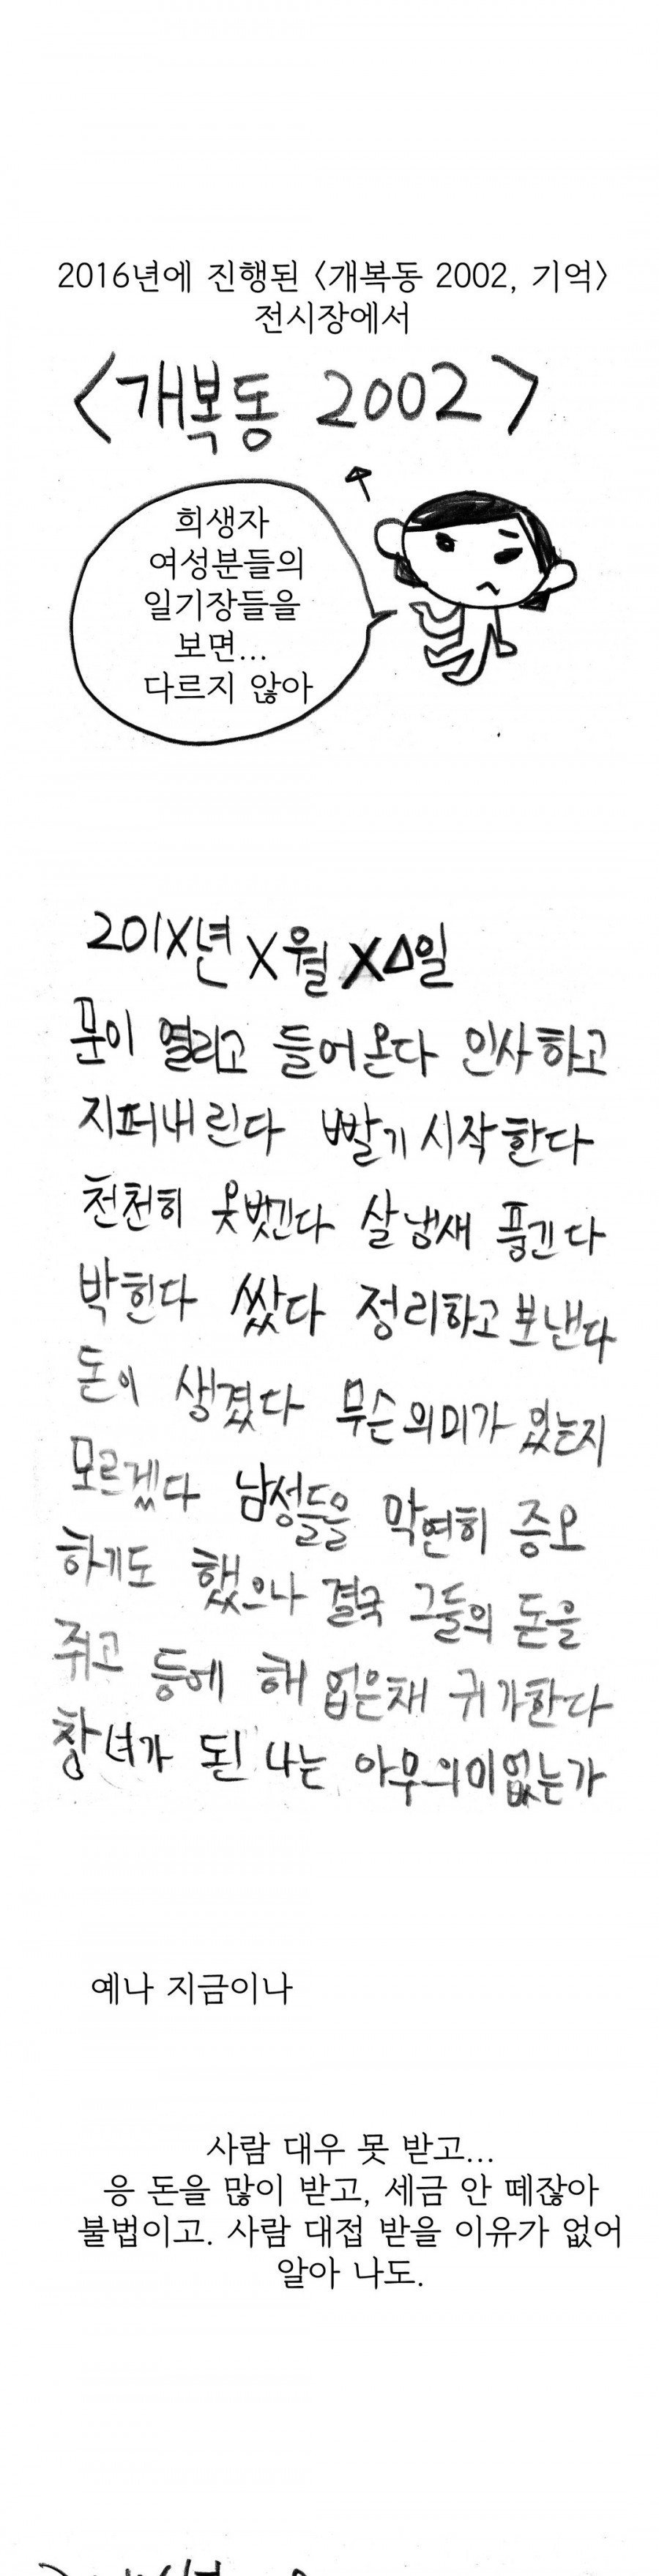 2016년에 진행된 <개복동 2002, 기억>
전시장에서
<개복동 2002>
희생자
여성분들의
일기장들을
보면...
다르지 않아
201X년 X월 X△일
문이 열리고 들어온다 인사하고
지퍼내린다 빨기 시작한다
천천히 옷벗긴다 살냄새 풍긴다
박힌다 쌌다 정리하고 보낸다
돈이 생겼다 무슨의미가 있는지
모르겠다 남성들을 막연히 증오
하기도 했으나 결국 그들의 돈을
쥐고 등에 해 업은채 귀가한다
창녀가 된 나는 아무의미없는가
예나 지금이나
사람 대우 못 받고...
응 돈을 많이 받고, 세금 안 떼잖아
불법이고. 사람 대접 받을 이유가 없어
알아 나도.